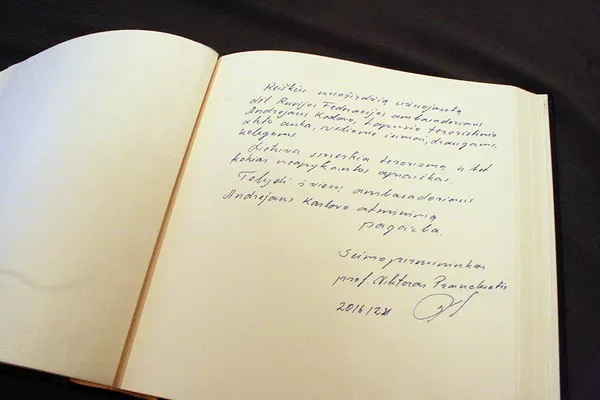 Reiškiu nuoširdžią užuojautą
dėl Rusijos Federacijos ambasadoriaus
Andrejaus Karlovo, tapusio teroristinio
akto auka, velionio šeimai, draugams,
kolegoms
Lietuva smerkia terorizmą ir bet
kokias neapykantos apraiškas.
Tebūnie šviesų ambasadoriaus
Andrejaus Karlovo atminimą
pagarba.
Seimo pirmininkas
prof. Viktoras Pranckietis
2016/12